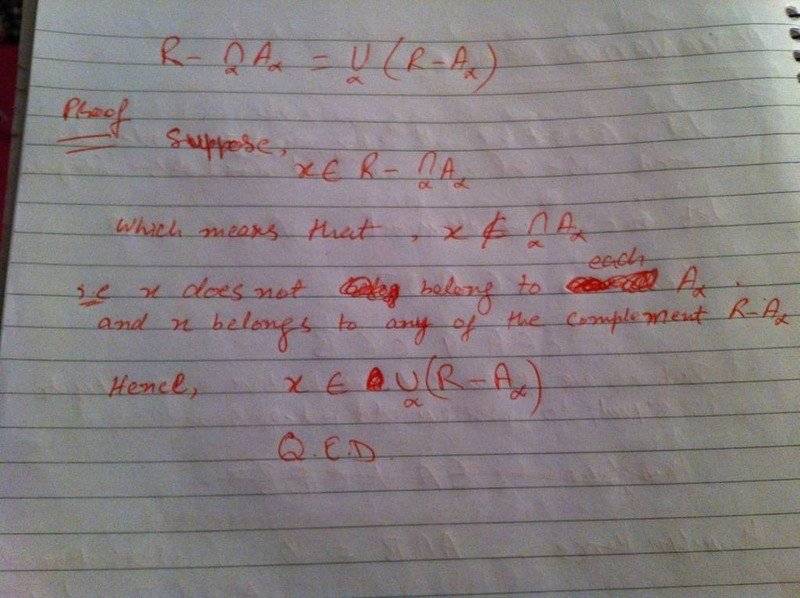 R - ∩_α A_α = ∪_α (R - A_α)
Proof
Suppose,
x ∈ R - ∩_α A_α
which means that, x ∉ ∩_α A_α
ie x does not belong to each A_α.
and x belongs to any of the complement R-A_α
Hence, x ∈ ∪_α (R - A_α)
Q.E.D